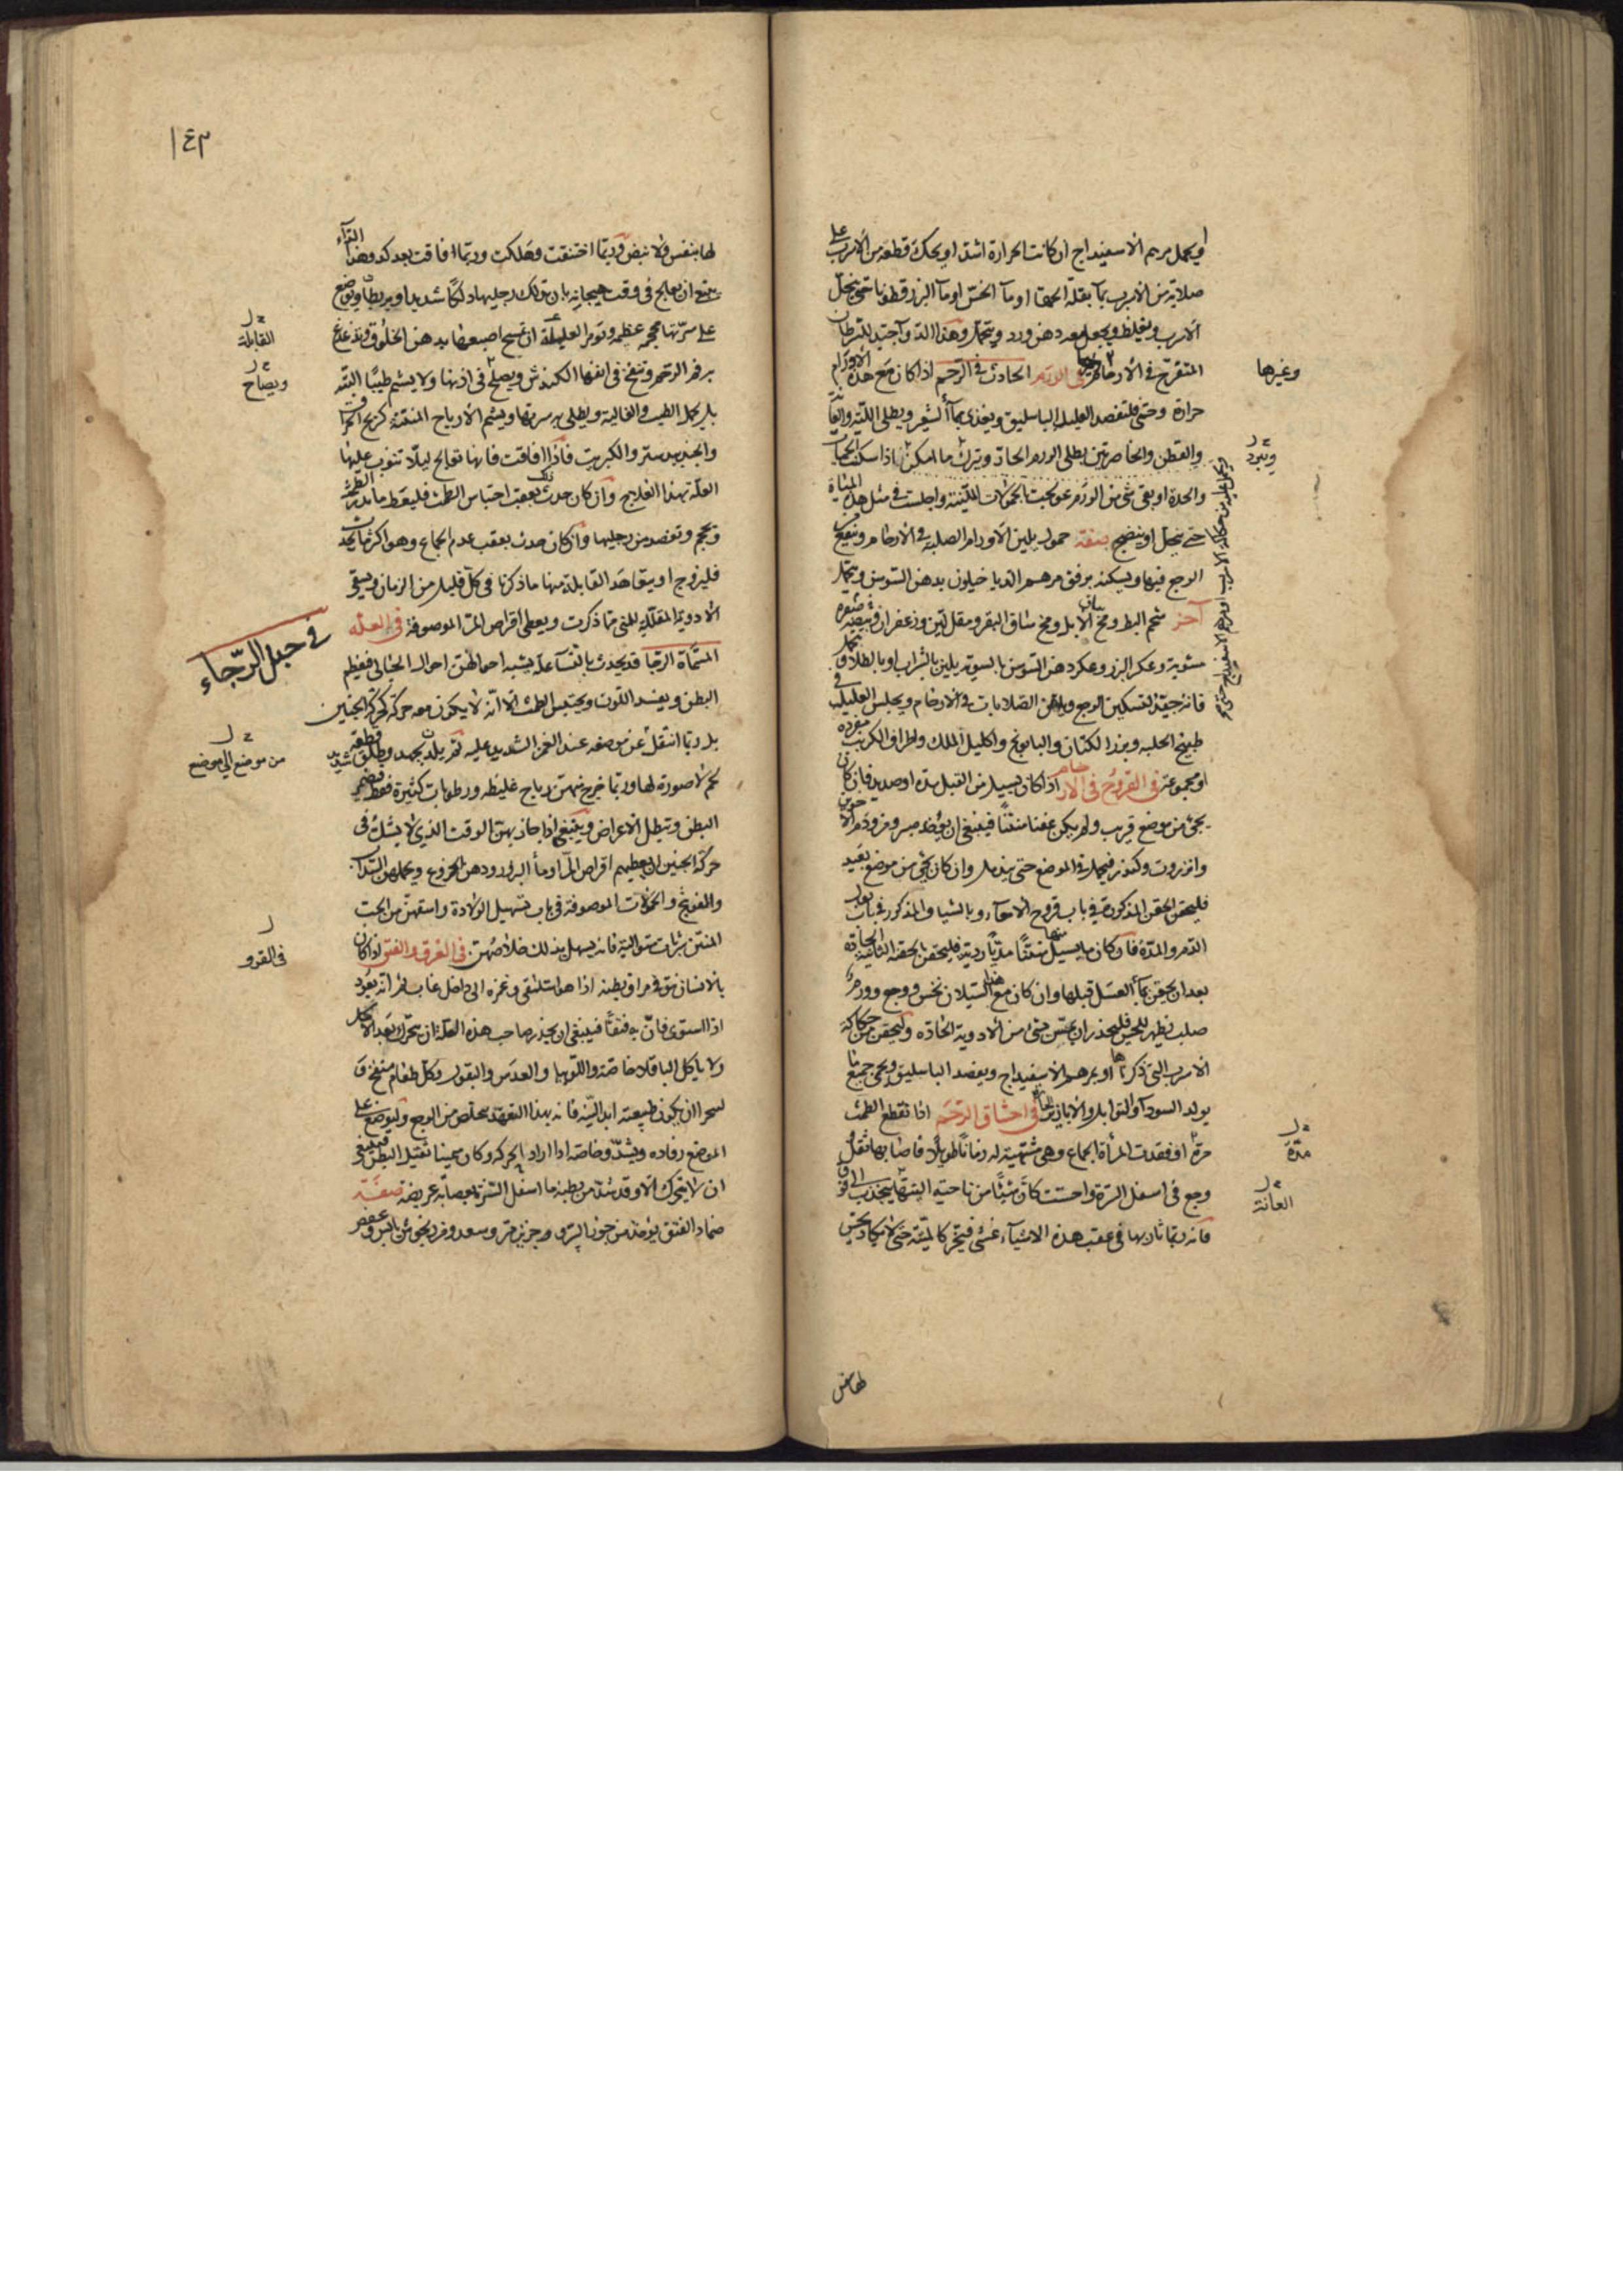 او يحمل مرهم الاسفيداج ان كانت الحرارة اشد او يحك قطعة من الاسرب على
صلاية من الاسرب بمآ بقلة الحمقا او مآ الخس او مآ البزرقطونا حتى ينحل
الاسرب ويغلظ ويجعل معه دهن ورد ويتحمل وهذا الدوآ جيد للسرطان
المتقرح فى الارحام وغيرها فى الورم الحادث فى الرحم اذا كان مع هذه الاورام
وغيرها
حرارة وحمى فلتفصد العليلة الباسليق ويغذى بمآ الشعير ويطلى اللبة والعانة
والقطن والخاصرتين بطلى الورم الحاد ويترك ما امكن فاذا سكنت الحمى
ويبرد
والحدة او بقى شئ من الورم عولجت بالحمولات الملينة واجلست فى مثل هذه المياه
حتى ينحل او ينضج صفة حمول يلين الاورام الصلبة فى الارحام وينضج
الوجع فيها ويسكنه يرفق مرهم الدياخيلون بدهن السوسن ويتحمل
آخر شحم البط ومخ الابل ومخ ساق البقر ومقل لين وزعفران وبيضة صفره
مشوية وعكر البزر وعكر دهن السوسن بالسوية يلين بالشراب او بالطلا ويتحمل
فانه جيد لتسكين الوجع ولهذه الصلابات فى الارحام ويجلس العليلة فى
طبيخ الحلبة وبزر الكتان والبابونج واكليل الملك واطراف الكرنب مفردة
او مجموعة فى القروح فى الارحام اذا كان يسيل من القبل مدة او صديد فان كان
يجئ من موضع قريب ولم يكن عفنا منتنا فينبغى ان يؤخذ صبر ومر ودم الاخوين
وانزروت وكندر فيحمل فى الموضع حتى يندمل وان كان يجئ من موضع بعيد
فليحقن الحقن المذكورة فى باب قروح الامعآء وبالشياف المذكور فى باب بول
الدم والمدة فان كان ما يسيل منها منتنا مدنيا رديا فليحقن بالحقنة الثانية الحادة
بعد ان يحقن بمآ العسل قبلها وان كان مع هذا السيلان نخس ووجع وورم
صلب يظهر للمجس فليحذر ان يمس بشئ من الادوية الحادة وليحقن من حكاكة
الاسرب التى ذكرناها او بمرهم الاسفيداج ويفصد الباسليق ويحمى جميع ما
يولد السودآ والتوابل والابازير الحارة فى اختناق الرحم اذا انقطع الطمث
مرة او فقدت المرأة الجماع وهى مشتهية له زمانا طويلا فاصابها ثقل
مدة
وجع فى اسفل السرة واحست كان شيئا من ناحية السرة ينجذب الى فوق
العانة
فانه ربما ثار بها فى عقب هذه الاشيآء غشى فيخر كالميتة حتى لا يكاد يحس
لها بنفس
١٤٣
لها بنفس ولا نبض وربما اختنقت وهلكت وربما افاقت بعد كد وهذا الدآء
ينبغى ان يعالج فى وقت هيجانه بان يدلك رجليها دلكا شديدا ويربطا ويوضع
على سرتها محجمة عظيمة وتؤمر القابلة ان تمسح اصبعها بدهن الخلوق وتدغدغ
القابلة
بها فم الرحم وينفخ فى انفها الكندش ويصاح فى اذنها ولا يشم طيبا البتة
ويصاح
بل يحمل الطيب والغالية ويطلى به سرتها ويشم الارياح المنتنة كريح الحراق
والجندبيدستر والكبريت فاذا افاقت فانها تعالج ليلا تنوب عليها
العلة بهذا العلاج وان كان حدث ذلك بعقب احتباس الطمث فليعط ما يدر الطمث
وتحجم وتفصد من رجليها وان كان حدث بعقب عدم الجماع وهو اكثر ما يحدث
فليزوج او يتعاهد القابلة منها ما ذكرنا فى كل قليل من الزمان ويسقى
الادوية المقللة للمنى مما ذكرت ويعطى اقراص المر الموصوفة فى العلة
فى حبل الرجاء
المسماة الرجا قد يحدث بالنسآ علة يشبه احوالهن احوال الحبالى فيعظم
البطن ويفسد اللون ويحتبس الطمث الا انه لا يكون معه حركة كحركة الجنين
بل ربما انتقل عن موضعه عند الغمز الشديد عليه ثم يلدن بجهد وطلق شديد قطعة
من موضع الى موضع
لحم لا صورة لها وربما خرج منهن رياح غليظة ورطوبات كثيرة فقط فيضمر
البطن وتبطل الاعراض وينبغى اذا جاز بهن الوقت الذى لا يشك فى
حركة الجنين ان يعطيهم اقراص المر او مآ البزور ودهن الخروع ويحملهن السذاب
والفوتنج والحمولات الموصوفة فى باب تسهيل الولادة واسقهن من الحب
المنتن شربات متوالية فانه يسهل بذلك خلاصهن فى القرو والفتق اذا كان
فى القرو
بالانسان نتو فى مراق بطنه اذا هو استلقى وغمزه الى داخل غاب ثم انه يعود
اذا استوى فان به فتقا فينبغى ان يحذر صاحب هذه العلة ان يتحرك بعد الاكل
ولا ياكل الباقلا خاصة واللوبيا والعدس والبقول وكل طعام منفخ
ليحرا ان يكون طبيعته ابدا لينة فانه بهذا التعهد يتخلص من الوجع وليوضع على
الموضع رفاده ويشد وخاصة اذا اراد الحركة وكان سمينا ثقيل البطن فينبغى
ان لا يتحرك الا وقد شد من بطنه ما اسفل السرة بعصابة عريضة صفة
ضماد الفتق يؤخذ من جوز السرو وجزين مر وسعد ومرزنجوش يابس وعفص